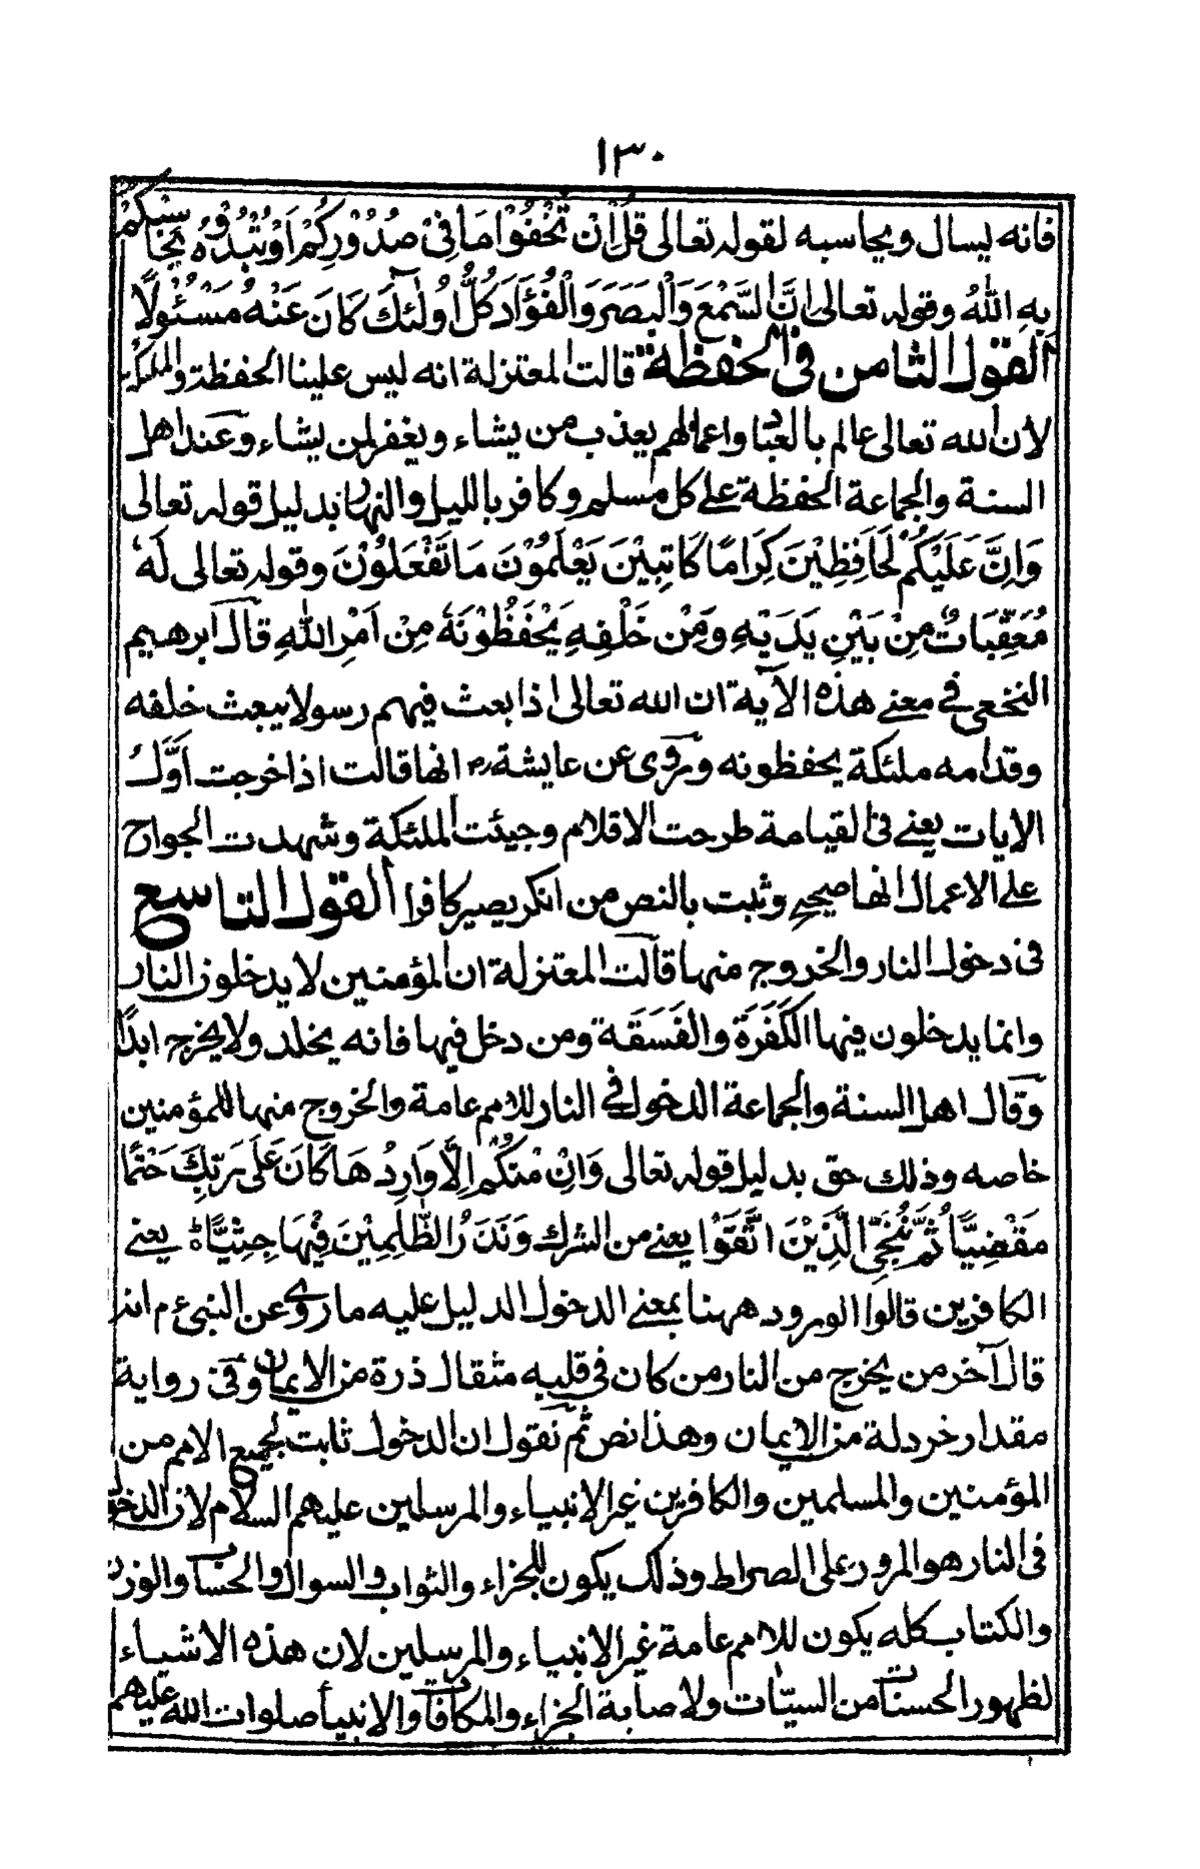 ١٣٠
فانه يسال ويحاسبه لقوله تعالى قُلْ اِنْ تُخْفُوْا مَا فِىْ صُدُوْرِكُمْ اَوْ تُبْدُوْهُ يُحَاسِبْكُمْ
بِهِ اللّٰهُ وقوله تعالى اِنَّ السَّمْعَ وَالْبَصَرَ وَالْفُؤَادَ كُلُّ اُولٰئِكَ كَانَ عَنْهُ مَسْئُوْلًا
القول الثامن فى الحفظة قالت المعتزلة انه ليس علينا الحفظة والملئكة
لان الله تعالى عالم بالعباد واعمالهم يعذب من يشاء ويغفر لمن يشاء وعند اهل
السنة والجماعة الحفظة على كل مسلم وكافر بالليل والنهار بدليل قوله تعالى
وَاِنَّ عَلَيْكُمْ لَحَافِظِيْنَ كِرَامًا كَاتِبِيْنَ يَعْلَمُوْنَ مَا تَفْعَلُوْنَ وقوله تعالى لَهٗ
مُعَقِّبَاتٌ مِنْ بَيْنِ يَدَيْهِ وَمِنْ خَلْفِهٖ يَحْفَظُوْنَهٗ مِنْ اَمْرِ اللّٰهِ قال ابرهيم
النخعى فى معنى هذه الآية ان الله تعالى اذا بعث فيهم رسولا يبعث خلفه
وقدامه ملئكة يحفظونه وروى عن عايشة رض انها قالت اذا خرجت اَوَّلُ
الايات يعنى فى القيامة طرحت الاقلام وجيئت الملئكة وشهدت الجوارح
على الاعمال انها صحيح وثبت بالنص من انكر يصير كافرا القول التاسع
فى دخول النار والخروج منها قالت المعتزلة ان المؤمنين لا يدخلون النار
وانما يدخلون فيها الكَفَرَة والفَسَقَة ومن دخل فيها فانه يخلد ولا يخرج ابدًا
وقال اهل السنة والجماعة الدخول فى النار للامم عامة والخروج منها للمؤمنين
خاصه وذلك حق بدليل قوله تعالى وَاِنْ مِنْكُمْ اِلَّا وَارِدُهَا كَانَ عَلَى رَبِّكَ حَتْمًا
مَقْضِيًّا ثُمَّ نُنَجِّى الَّذِيْنَ اتَّقَوْا يعنى من الشرك وَنَذَرُ الظّٰلِمِيْنَ فِيْهَا جِثِيًّا ط يعنى
الكافرين قالوا الورود ههنا بمعنى الدخول الدليل عليه ما روى عن النبى ء م انه
قال آخر من يخرج من النار من كان فى قلبه مثقال ذرة من الايمان وفى رواية
مقدار خردلة من الايمان وهذا نص ثم نقول ان الدخول ثابت لجميع الامم من
المؤمنين والمسلمين والكافرين غير الانبياء والمرسلين عليهم السلام لان الدخول
فى النار هو المرور على الصراط وذلك يكون للجزاء والثواب والسوال والحساب والوزن
والكتاب كله يكون للامم عامة غير الانبياء والمرسلين لان هذه الاشياء
لظهور الحسنات من السيّات ولاصابة الجزاء والمكافات والانبيأ صلوات الله عليهم